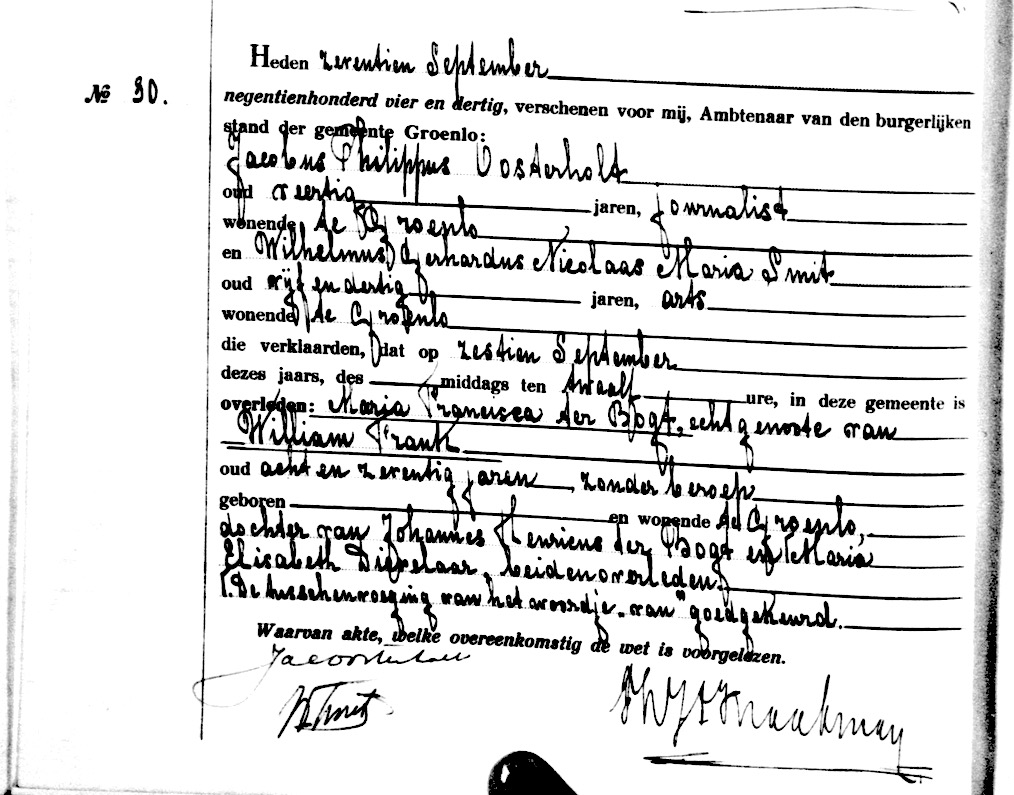 Heden zeventien September
№ 30.
negentienhonderd vier en dertig, verschenen voor mij, Ambtenaar van den burgerlijken
stand der gemeente Groenlo:
Jacobus Philippus Oosterholt
oud veertig jaren, journalist
wonende te Groenlo
en Wilhelmus Gerhardus Nicolaas Maria Smit
oud vijf en dertig jaren, arts
wonende te Groenlo
die verklaarden, dat op zestien September
dezes jaars, des middags ten twaalf ure, in deze gemeente is
overleden: Maria Francisca ter Bogt, echtgenoote van
William Frank
oud acht en zeventig jaren, zonder beroep
geboren en wonende te Groenlo,
dochter van Johannes Henricus ter Bogt en Maria
Elisabeth Diepelaar, beiden overleden.
(De tusschenvoeging van het woordje „van" goedgekeurd.
Waarvan akte, welke overeenkomstig de wet is voorgelezen.
Jac Oosterholt